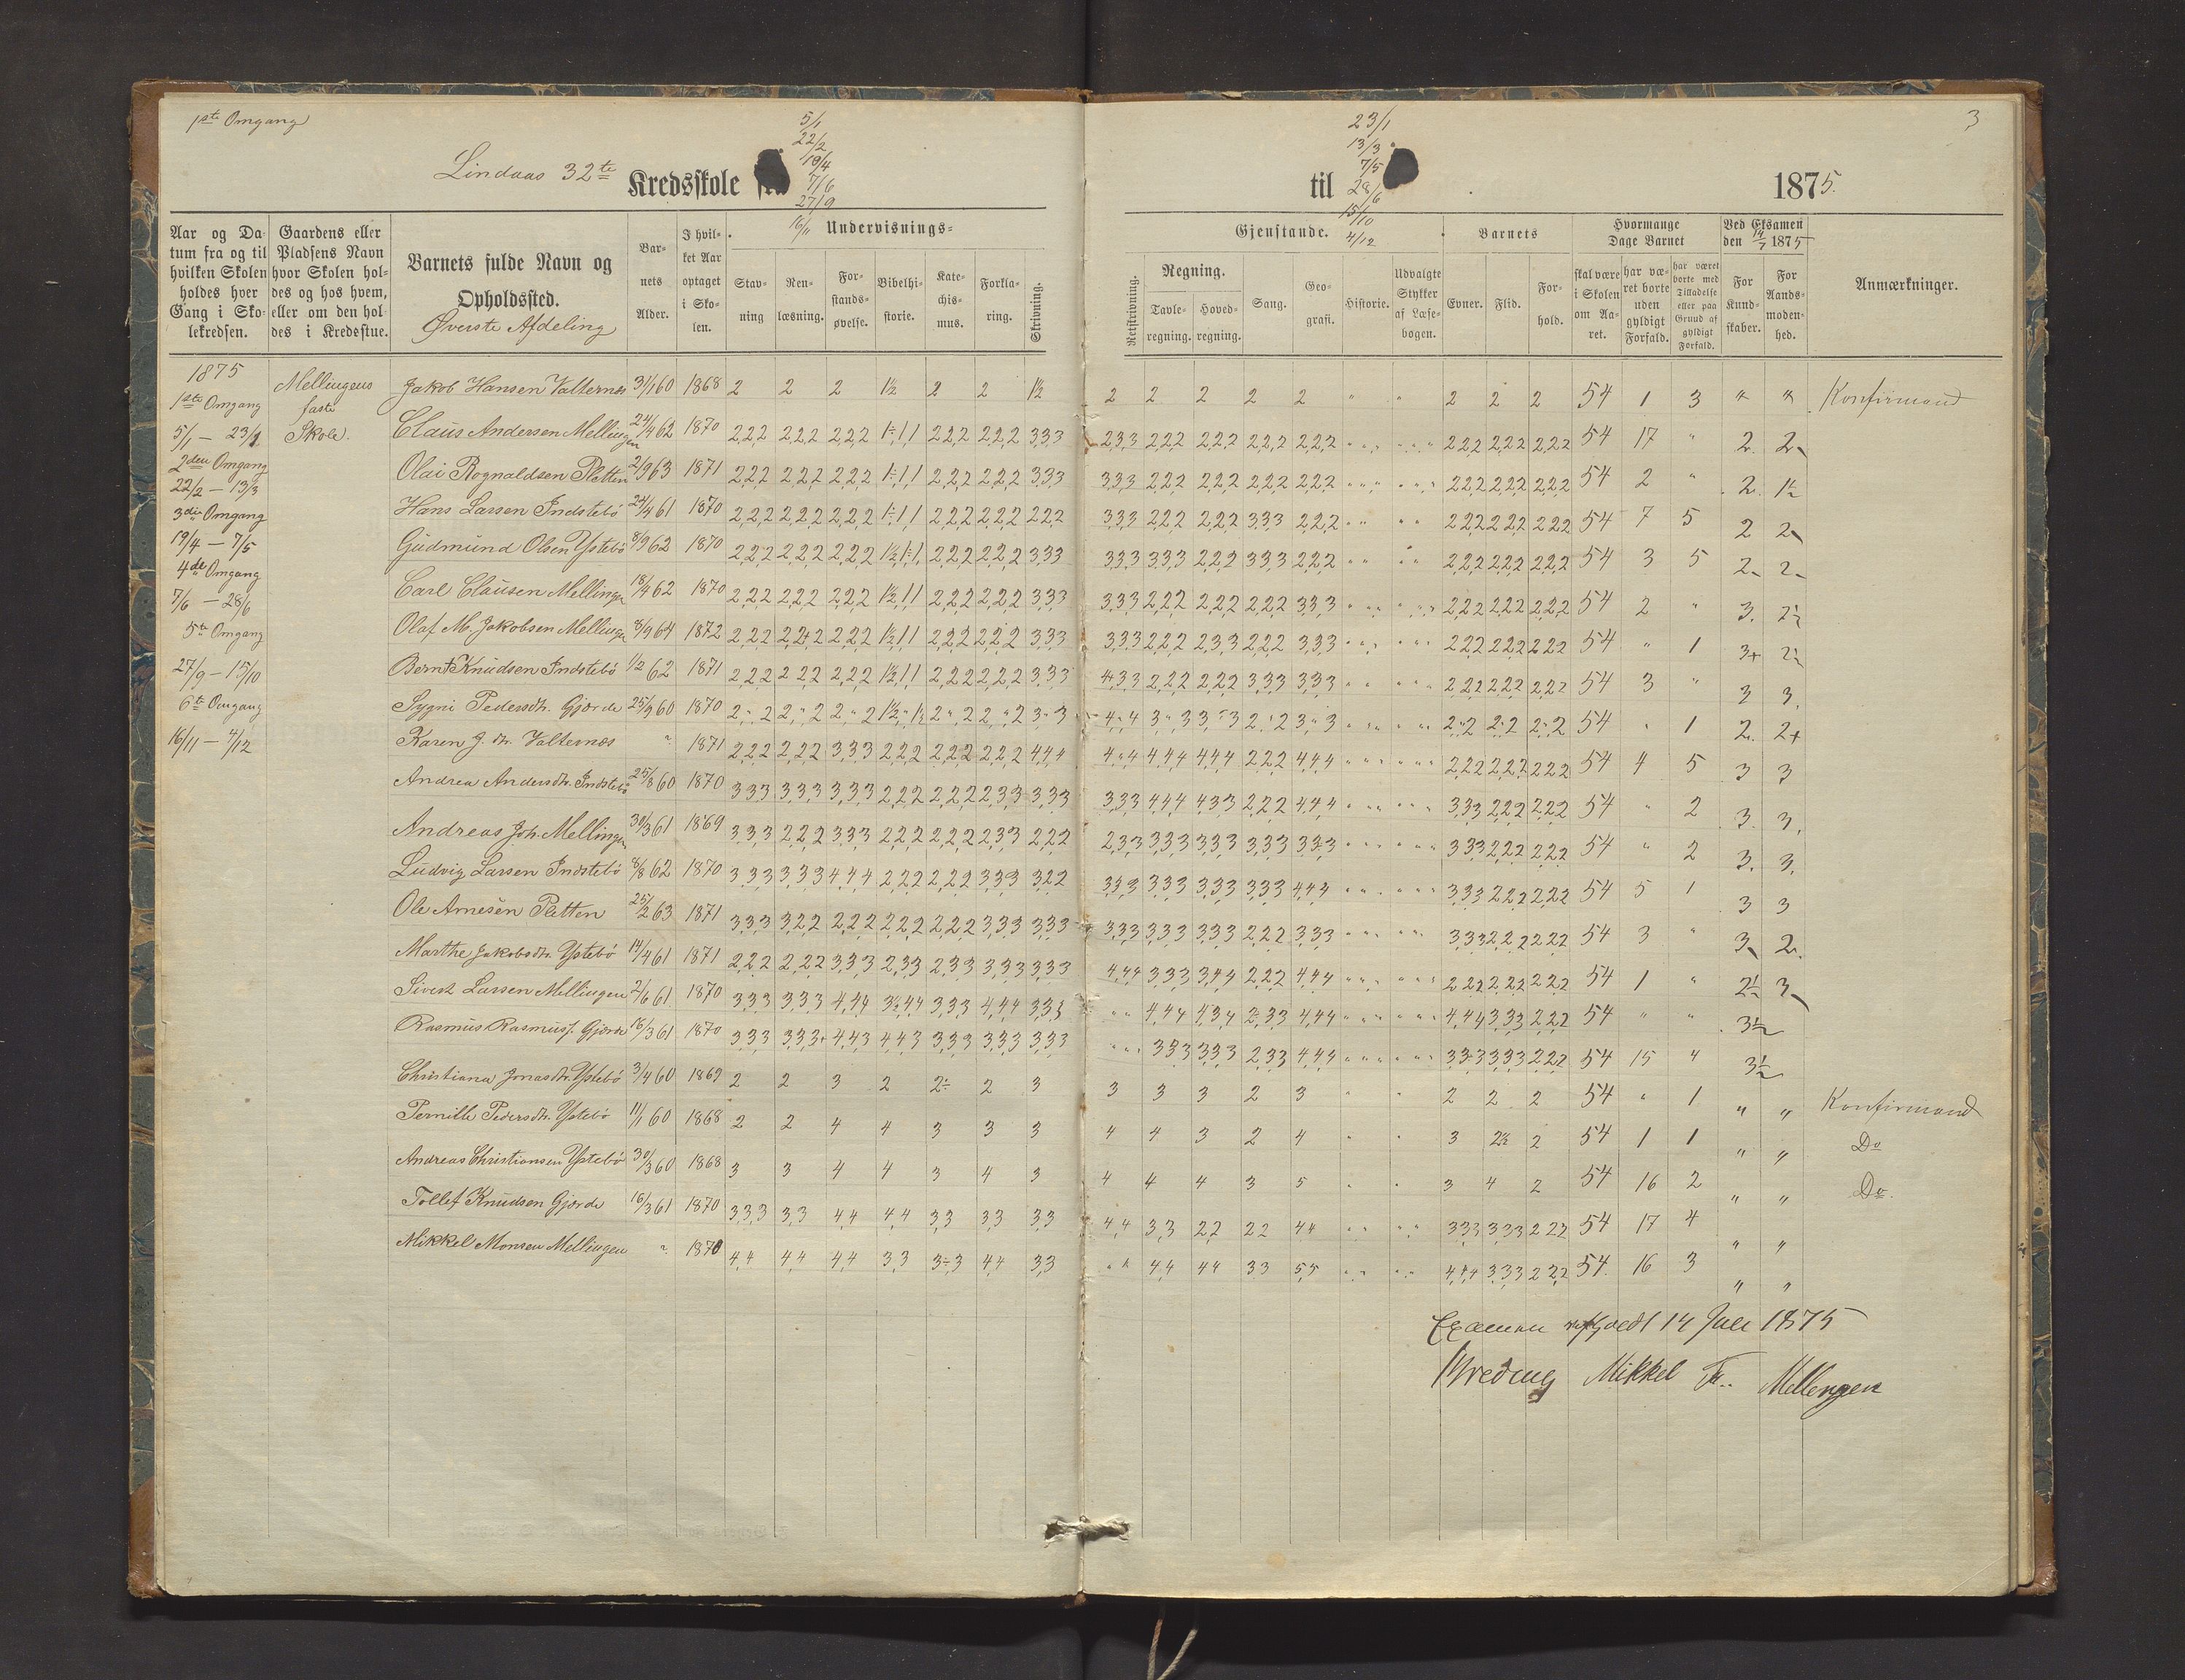 1ste Omgang
5/1
22/2
19/4
7/6
27/9
16/11
Lindaas 32te Kredsskole
23/1
13/3
7/5
28/6
15/10
4/12
til
1875.
3
Aar og Datum fra og til hvilken Skolen holdes hver Gang i Skolekredsen.
Gaardens eller Pladsens Navn hvor Skolen holdes og hos hvem, eller om den holdes i Kredsstue.
Barnets fulde Navn og Opholdssted.
Øverste Afdeling
Barnets Alder.
I hvilket Aar optaget i Skolen.
Undervisnings-
Stavning
Renlæsning.
Forstandsøvelse.
Bibelhistorie.
Katechismus.
Forklaring.
Skrivning.
Gjenstande.
Retskrivning.
Regning.
Tavleregning.
Hovedregning.
Sang.
Geografi.
Historie.
Udvalgte Stykker af Læsebogen.
Barnets
Evner.
Flid.
Forhold.
Hvormange Dage Barnet
skal være i Skolen om Aaret.
har været borte uden gyldigt Forfald.
har været borte med Tilladelse eller paa Grund af gyldigt Forfald.
Ved Eksamen den 14/7 1875
For Kundskaber.
For Aandsmodenhed.
Anmærkninger.
1875
1ste Omgang
5/1 — 23/1
2den Omgang
22/2 — 13/3
3die Omgang
19/4 — 7/5
4de Omgang
7/6 — 28/6
5te Omgang
27/9 — 15/10
6te Omgang
16/11 — 4/12
Mellingens
faste
Skole.
Jakob Hansen Valternes 31/1 60 1868 2 2 2 1½ 2 2 1½ 2 2 2 2 2 " " 2 2 2 54 1 3 " " Konfirmand
Claus Andersen Mellingen 24/4 62 1870 2,2,2 2,2,2 2,2,2 1÷,1,1 2,2,2 2,2,2 3,3,3 2,3,3 2,2,2 2,2,2 2,2,2 2,2,2 2,2,2 2,2,2 2,2,2 54 17 " 2 2
Olai Rognaldsen Pletten 2/9 63 1871 2,2,2 2,2,2 2,2,2 1÷,1,1 2,2,2 2,2,2 3,3,3 3,3,3 2,2,2 2,2,2 2,2,2 2,2,2 2,2,2 2,2,2 2,2,2 54 2 " 2 1½
Hans Larsen Indstebö 24/4 61 1870 2,2,2 2,2,2 2,2,2 1÷,1,1 2,2,2 2,2,2 2,2,2 3,3,3 2,2,2 2,2,2 3,3,3 2,2,2 2,2,2 2,2,2 2,2,2 54 7 5 2 2
Gudmund Olsen Ystebö 8/9 62 1870 2,2,2 2,2,2 2,2,2 1½,1÷,1 2,2,2 2,2,2 3,3,3 3,3,3 3,3,3 2,2,2 3,3,3 2,2,2 2,2,2 2,2,2 2,2,2 54 3 5 2 2
Carl Clausen Mellingen 18/4 62 1870 2,2,2 2,2,2 2,2,2 1½,1,1 2,2,2 2,2,2 3,3,3 3,3,3 2,2,2 2,2,2 2,2,2 3,3,3 2,2,2 2,2,2 2,2,2 54 2 " 3. 2½
Olaf M. Jakobsen Mellingen 8/9 64 1872 2,2,2 2,2+2 2,2,2 1½,1,1 2,2,2 2,2,2 3,3,3 3,3,3 2,2,2 2,3,3 2,2,2 3,3,3 2,2,2 2,2,2 2,2,2 54 " 1 3+ 2½
Bernt Knudsen Indstebö 1/2 62 1871 2,2,2 2,2,2 2,2,2 1½,1,1 2,2,2 2,2,2 3,3,3 4,3,3 2,2,2 2,2,2 3,3,3 3,3,3 2,2,2 2,2,2 2,2,2 54 3 " 3 3
Sygni Pedersdtr. Gjærde 25/9 60 1870 2,",2 2,",2 2,",2 1½,",1½ 2,",2 2,",2 3,",3 4,",4 3,",3 3,",3 2,",2 3,",3 2,",2 2,",2 2,",2 54 " 1 2 2+
Karen J. dtr. Valternes " 1871 2,2,2 2,2,2 3,3,3 2,2,2 2,2,2 2,2,2 4,4,4 4,",4 4,4,4 4,4,4 2,2,2 4,4,4 2,2,2 2,2,2 2,2,2 54 4 5 3 3
Andrea Andersdtr. Indstebö 25/8 60 1870 3,3,3 3,3,3 3,3,3 2,2,2 2,2,2 2,3,3 3,3,3 3,3,3 4,4,4 4,3,3 2,2,2 4,4,4 3,3,3 2,2,2 2,2,2 54 " 2 3 3
Andreas Joh. Mellingen 30/3 61 1869 3,3,3 2,2,2 3,3,3 2,2,2 2,2,2 2,3,3 2,2,2 2,3,3 3,3,3 3,3,3 3,3,3 3,3,3 3,3,3 2,2,2 2,2,2 54 " 2 3 3
Ludvig Larsen Indstebö 8/8 62 1870 3,3,3 3,3,3 4,4,4 2,2,2 2,2,2 3,3,3 3,2,2 3,3,3 3,3,3 3,3,3 3,3,3 4,4,4 3,3,3 2,2,2 2,2,2 54 5 1 3 3
Ole Arnesen Pletten 25/2 63 1871 3,3,3 3,2,2 2,2,2 2,2,2 2,2,2 3,3,3 3,3,3 3,3,3 3,3,3 3,3,3 2,2,2 3,3,3 3,3,3 2,2,2 2,2,2 54 3 " 3 2
Marthe Jakobsdtr. Ystebö 14/4 61 1871 2,2,2 2,2,2 3,3,3 2,3,3 2,3,3 3,3,3 3,3,3 4,4,4 3,3,3 3,4,4 2,2,2 4,4,4 2,2,2 2,2,2 2,2,2 54 1 " 2½ 3
Sivert Larsen Mellingen 2/6 61 1870 3,3,3 3,3,3 4,4,4 3½,4,4 3,3,3 4,4,4 3,3,3 " " 4,4,4 4,3,4 2,3,3 4,4,4 4,4,4 3,3,3 2,2,2 54 " " 3½
Rasmus Rasmuss. Gjærde 16/3 61 1870 3,3,3 3,3,3+ 4,4,3 4,4,3 3,3,3 3,3,3 3,3,3 " " 3,3,3 3,3,3 2,3,3 4,4,4 3,3,3 3,3,3 2,2,2 54 15 4 3½
Christiana Jonasdtr. Ystebö 3/4 60 1869 2 2 3 2 2÷ 2 3 3 3 3 2 3 " " 2 2 2 54 " 1 " " Konfirmand
Pernille Pedersdtr. Ystebö 11/1 60 1868 2 2 4 4 3 3 3 4 4 3 2 4 " " 3 2½ 2 54 1 1 " " Do
Andreas Christiansen Ystebö 30/3 60 1868 3 3 4 4 3 4 3 4 4 4 3 5 " " 3 4 2 54 16 2 " " Do.
Tollef Knudsen Gjærde 16/3 61 1870 3,3,3 3,3 4,4 4,4 3,3 3,3 3,3 4,4 3,3 2,2 2,2 4,4 3,3,3 3,3,3 2,2,2 54 17 4 " "
Mikkel Monsen Mellingen " 1870 4,4 4,4 4,4 3,3 3÷,3 4,4 3,3 " " 4,4 4,4 3,3 5,5 4,4,4 3,3,3 2,2,2 54 16 3 " "
Examen 14 Juli 1875
Mikkel Mellengen